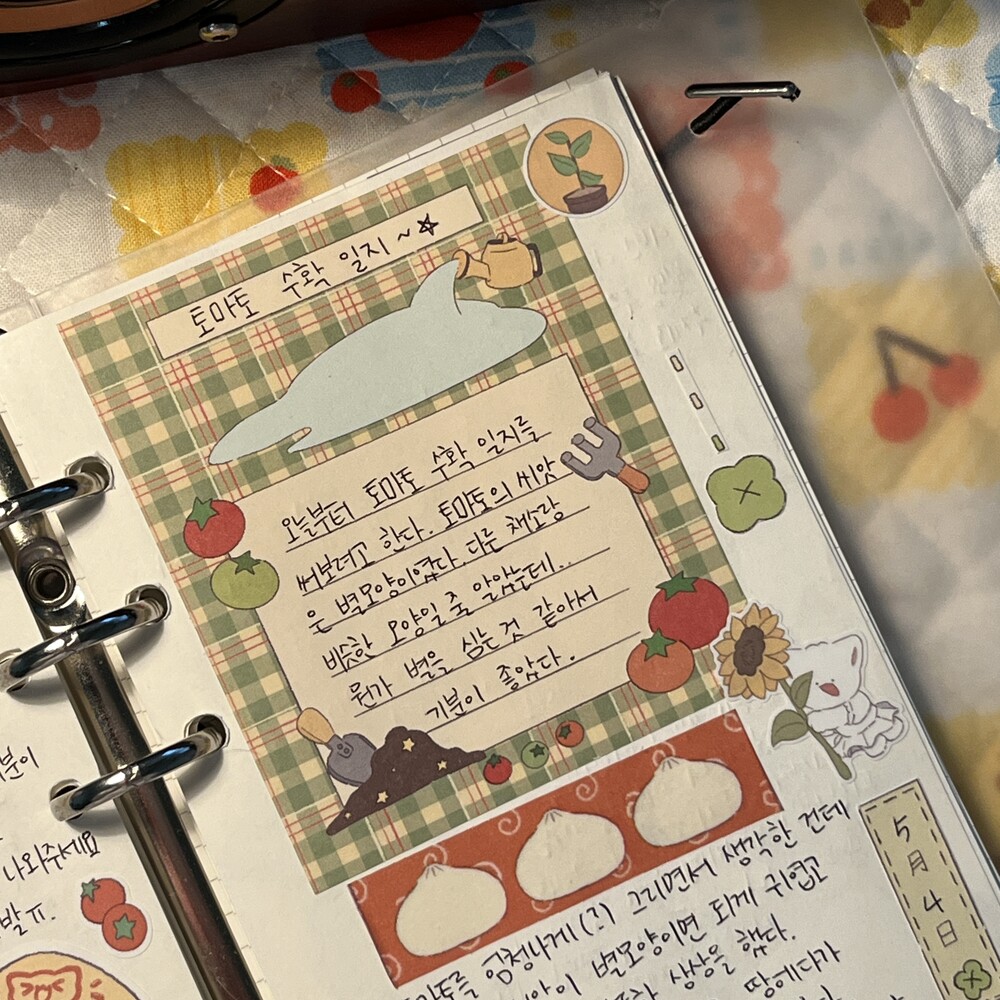 토마토 수확 일지~☆
오늘부터 토마토 수확 일지를
써보려고 한다. 토마토의 씨앗
은 별모양이였다. 다른 채소랑
비슷한 모양일 줄 알았는데..
뭔가 별을 심는 것 같아서
기분이 좋았다.
엄청나게(?) 그리면서 생각한 건데
별모양이면 되게 귀엽고
상상을 했다.
땅에다가
5
月
4
日
나와주세요